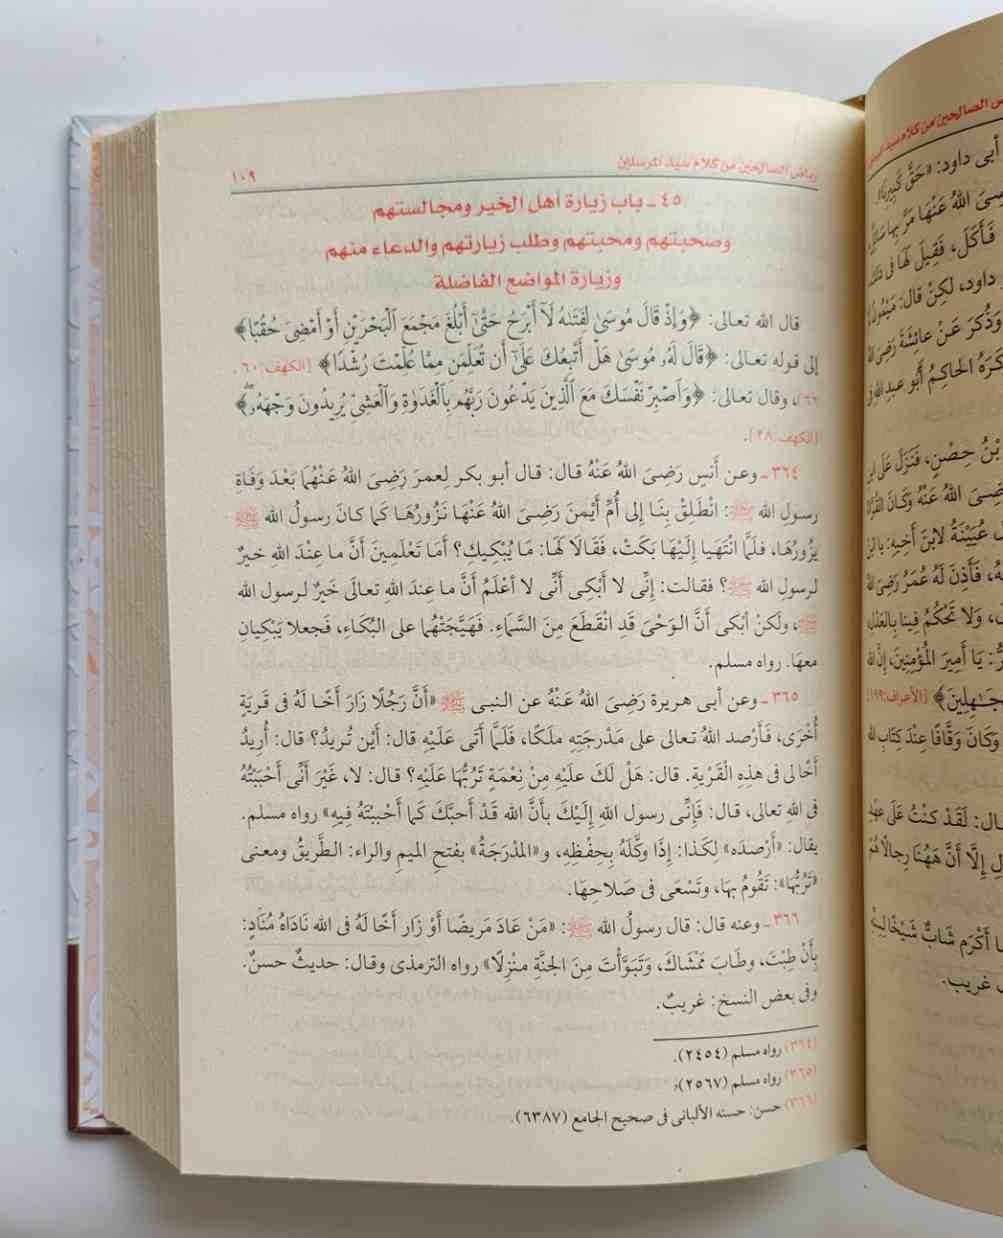 رياض الصالحين من كلام سيد المرسلين
١٠٩
٤٥ ـ باب زيارة أهل الخير ومجالستهم
وصحبتهم ومحبتهم وطلب زيارتهم والدعاء منهم
وزيارة المواضع الفاضلة
قال الله تعالى: ﴿وَإِذْ قَالَ مُوسَىٰ لِفَتَىٰهُ لَآ أَبْرَحُ حَتَّىٰٓ أَبْلُغَ مَجْمَعَ ٱلْبَحْرَيْنِ أَوْ أَمْضِىَ حُقُبًا﴾
إلى قوله تعالى: ﴿قَالَ لَهُۥ مُوسَىٰ هَلْ أَتَّبِعُكَ عَلَىٰٓ أَن تُعَلِّمَنِ مِمَّا عُلِّمْتَ رُشْدًا﴾ [الكهف: ٦٠،
٦٦]، وقال تعالى: ﴿وَٱصْبِرْ نَفْسَكَ مَعَ ٱلَّذِينَ يَدْعُونَ رَبَّهُم بِٱلْغَدَوٰةِ وَٱلْعَشِىِّ يُرِيدُونَ وَجْهَهُۥ﴾
[الكهف: ٢٨].
٣٦٤ ـ وعن أَنسٍ رَضِىَ اللهُ عَنْهُ قال: قال أبو بكر لِعمرَ رَضِىَ اللهُ عَنْهُمَا بَعْدَ وَفَاةِ
رسولِ الله ﷺ: انْطَلِقْ بِنَا إلى أُمِّ أَيْمنَ رَضِىَ اللهُ عَنْهَا نَزُورُهَا كَمَا كانَ رسولُ الله ﷺ
يزُورُهَا، فلَمَّا انْتَهَيا إِلَيْهَا بَكَتْ، فَقَالَا لَهَا: مَا يُبْكِيكِ؟ أَمَا تَعْلَمِينَ أَنَّ ما عِنْدَ اللهِ خيرٌ
لرسولِ الله ﷺ؟ فقالت: إِنِّى لا أَبْكِى أَنِّى لا أَعْلَمُ أَنَّ ما عندَ اللهِ تعالَى خَيرٌ لرسول الله
ﷺ، ولَكنْ أبْكى أَنَّ الوَحْىَ قَدِ انْقَطَعَ مِنَ السَّماءِ. فَهَيَّجَتْهُما على البُكَاءِ، فَجعلا يَبْكِيانِ
معهَا. رواه مسلم.
٣٦٥ ـ وعن أبى هريرة رَضِىَ اللهُ عَنْهُ عن النبى ﷺ «أَنَّ رَجُلًا زَارَ أَخًا لَهُ فى قَريَةٍ
أُخْرَى، فَأَرْصد اللهُ تعالى على مَدْرجَتِهِ ملَكًا، فَلَمَّا أَتَى عَلَيْهِ قال: أَيْن تُريدُ؟ قال: أُرِيدُ
أَخًا لى فى هذِهِ الْقَرْيةِ. قال: هَلْ لَكَ علَيْهِ مِنْ نِعْمَةٍ تَرُبُّهَا عَلَيْهِ؟ قال: لا، غَيْرَ أَنِّى أَحْبَبْتُهُ
فى اللهِ تعالى، قال: فَإِنِّى رسول اللهِ إِلَيْكَ بأَنَّ الله قَدْ أَحبَّكَ كَما أَحْببْتَهُ فِيهِ» رواه مسلم.
يقال: «أَرْصدَه» لِكَذا: إِذَا وكَّلَهُ بِحفْظِهِ، و«المدْرَجَةُ» بفتحِ الميمِ والراءِ: الطَّريقُ ومعنى
«تَرُبُّهَا»: تَقُومُ بهَا، وتَسْعَى فى صَلاحِهَا.
٣٦٦ ـ وعنه قال: قال رسولُ الله ﷺ: «مَنْ عَادَ مَريضًا أَوْ زَار أَخًا لَهُ فى الله نَادَاهُ مُنَادٍ:
بِأَنْ طِبْتَ، وطَابَ مَمْشَاكَ، وَتَبَوَّأْتَ مِنَ الجنَّةِ منْزِلًا» رواه الترمذى وقال: حديثٌ حسنٌ.
وفى بعض النسخ: غريبٌ.
(٣٦٤) رواه مسلم (٢٤٥٤).
(٣٦٥) رواه مسلم (٢٥٦٧)،
(٣٦٦) حسن: حسنه الألبانى فى صحيح الجامع (٦٣٨٧).
أبى داود: «حَقَّ كَبِيرِنَا».
اللهُ عَنْهَا مَرَّ بها
فَأَكَلَ، فَقِيلَ لَهَا فى ذلك
داود، لكِنْ قال: مَيْمُون
وَذُكرَ عَنْ عائِشَةَ رَضِىَ الله
الحاكِمُ أَبُو عبدِ الله فى
بْنُ حِصْنٍ، فَنَزَلَ عَلَى ابن
اللهُ عَنْهُ وَكَانَ القُرَّاءُ
عُيَيْنَةُ لابْنِ أَخِيهِ: يا ابن
فَأَذِنَ لَهُ عُمَرُ رَضِىَ الله
وَلا تَحْكُمُ فِينا بِالعَدْلِ
يَا أَمِيرَ المُؤْمِنِينَ، إِنَّ الله
[الأعراف: ١٩٩]
وَكَانَ وَقَّافًا عِنْدَ كِتَابِ الله
لَقَدْ كنْتُ عَلَى عهْدِ
إِلَّا أَنَّ هَهُنَا رِجالًا هُمْ
أَكْرَم شَابٌّ شَيْخًا
غريب.